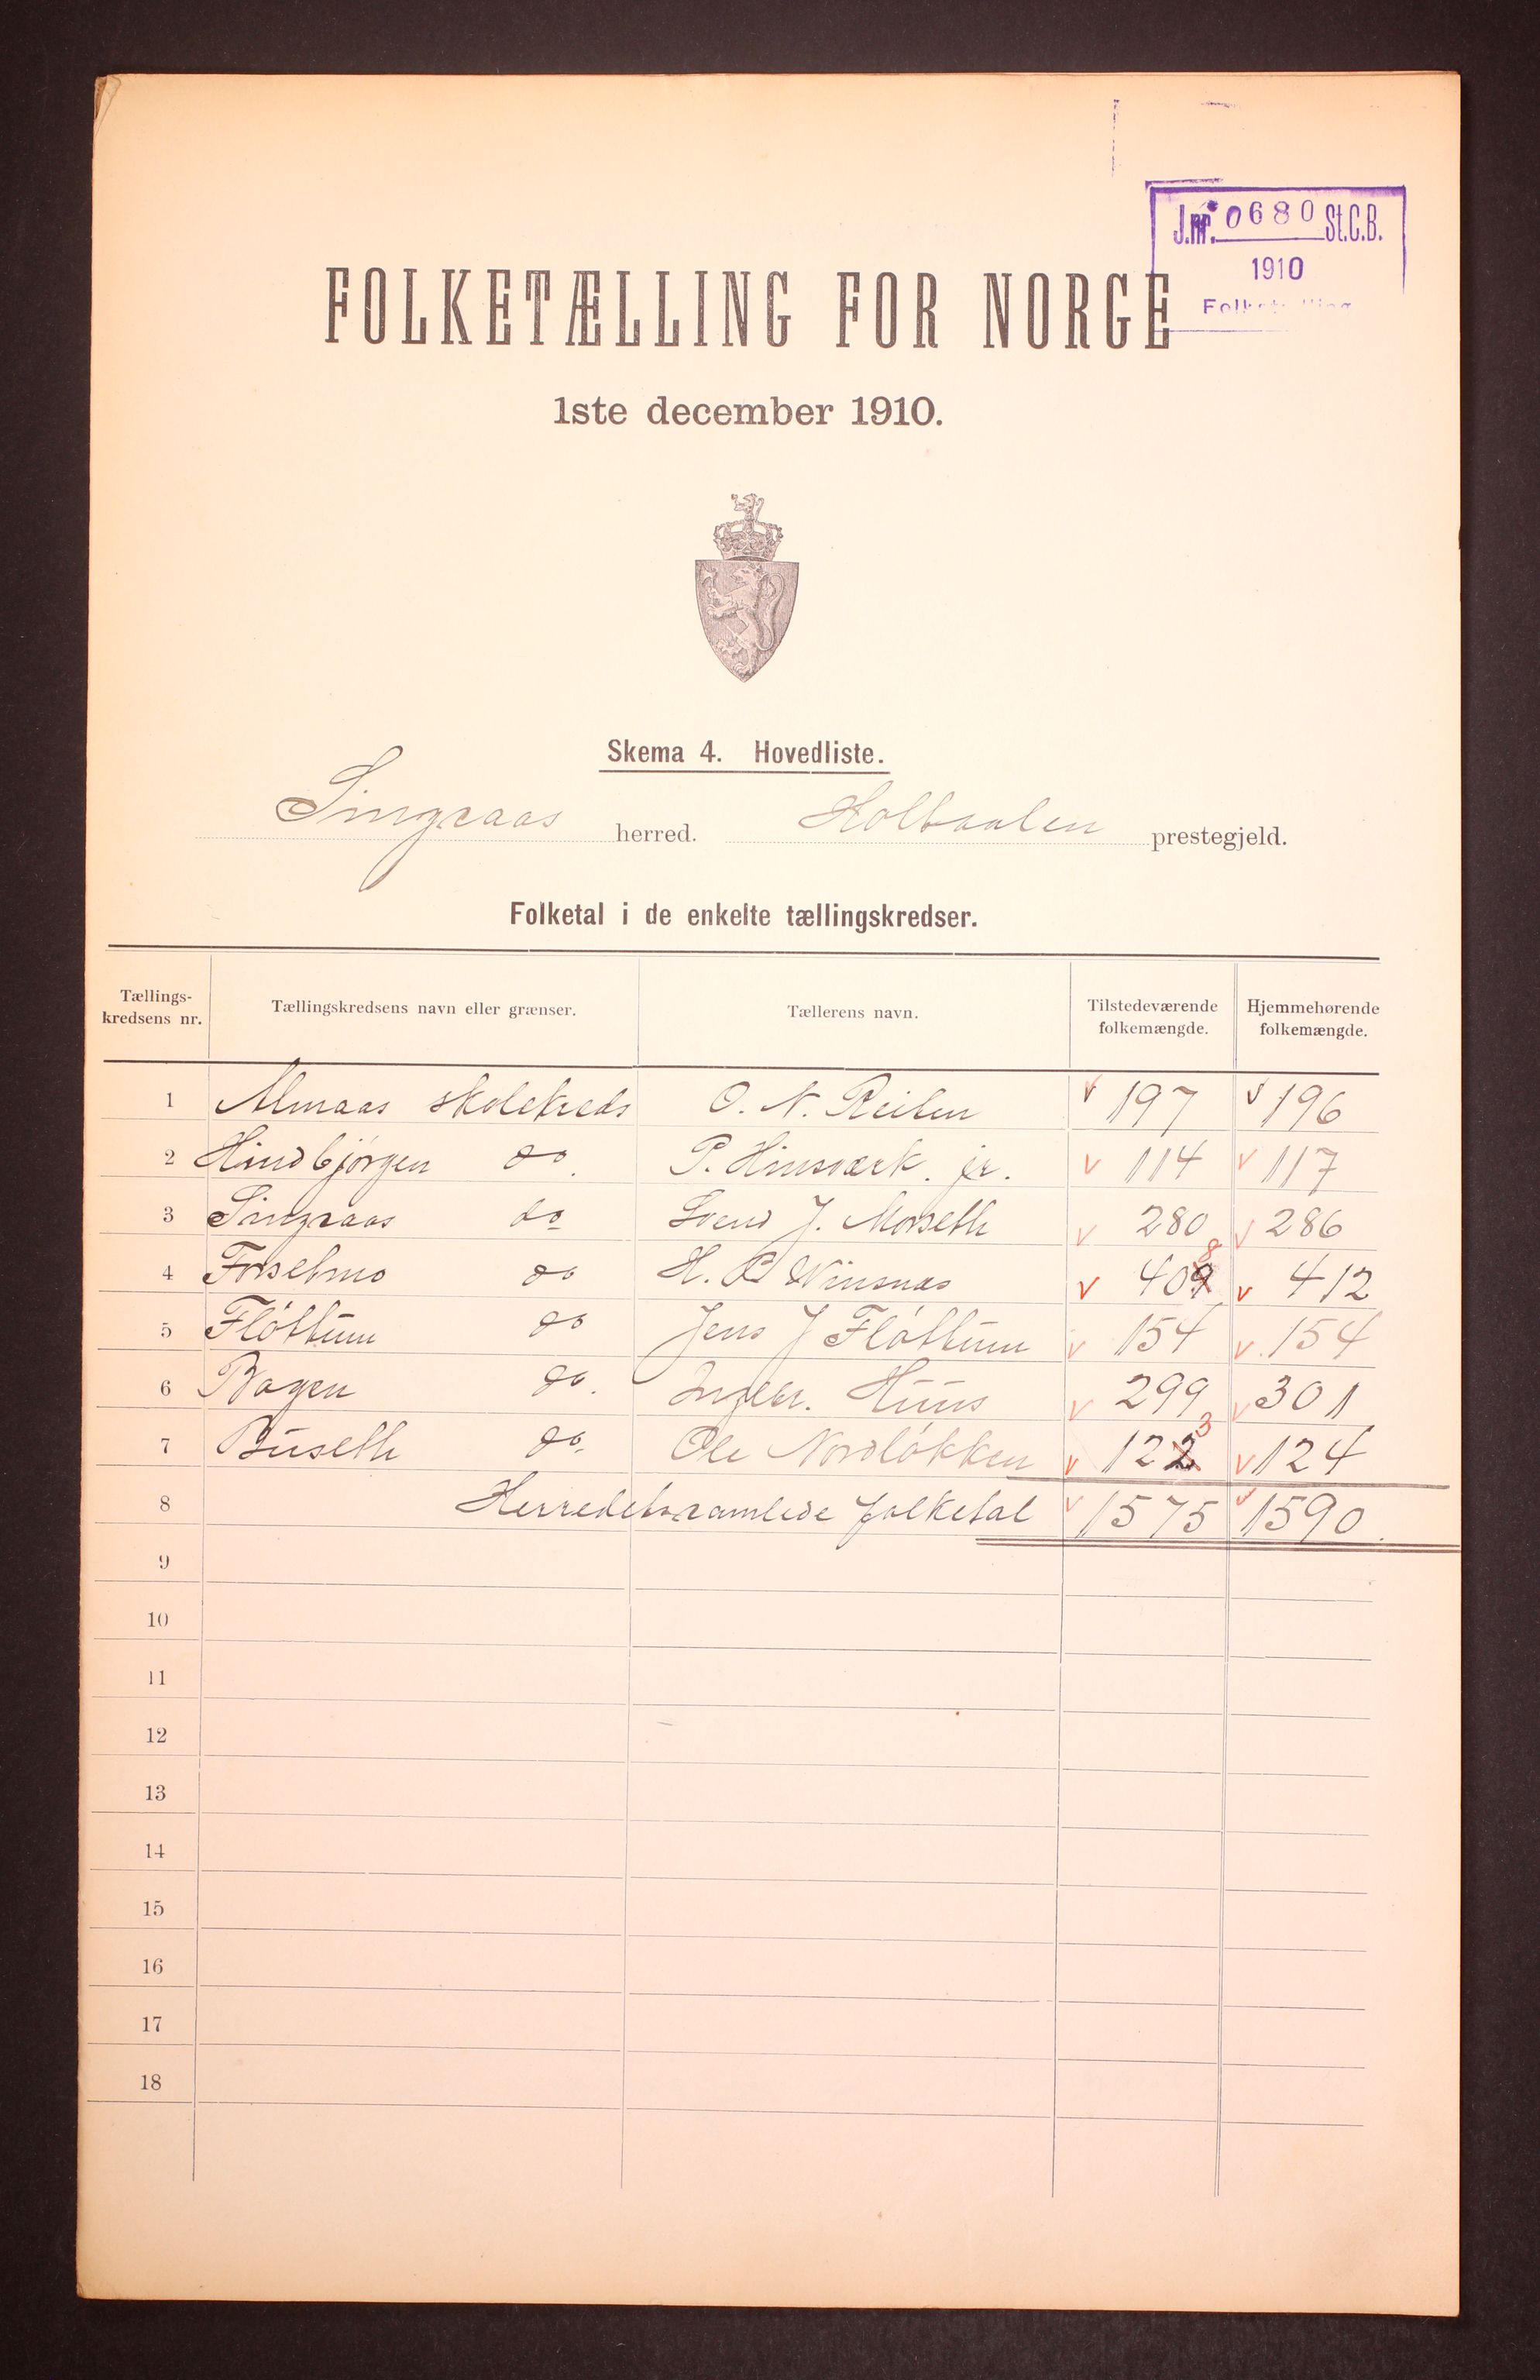 J.nr. 0680 St.C.B.
1910
Folketælling
FOLKETÆLLING FOR NORGE
1ste december 1910.
Skema 4. Hovedliste.
Singsaas herred. Holtaalen prestegjeld.
Folketal i de enkelte tællingskredser.
Tællings-
kredsens nr.
Tællingskredsens navn eller grænser.
Tællerens navn.
Tilstedeværende
folkemængde.
Hjemmehørende
folkemængde.
1 Almaas skolekreds O. N. Reiten v 197 v 196
2 Hindbjørgen do. P. Hinsværk. jr. v 114 v 117
3 Singsaas do Svend J. Morseth v 280 v 286
4 Forsetmo do H. P. Winsnes v 409 8 v 412
5 Fløttum do Jens J Fløttum v 154 v. 154
6 Bogen do. Ingebr. Huus v 299 v 301
7 Buseth do. Ole Nordløkken v 122 3 v 124
8 Herredets samlede folketal v 1575 v 1590.
9
10
11
12
13
14
15
16
17
18